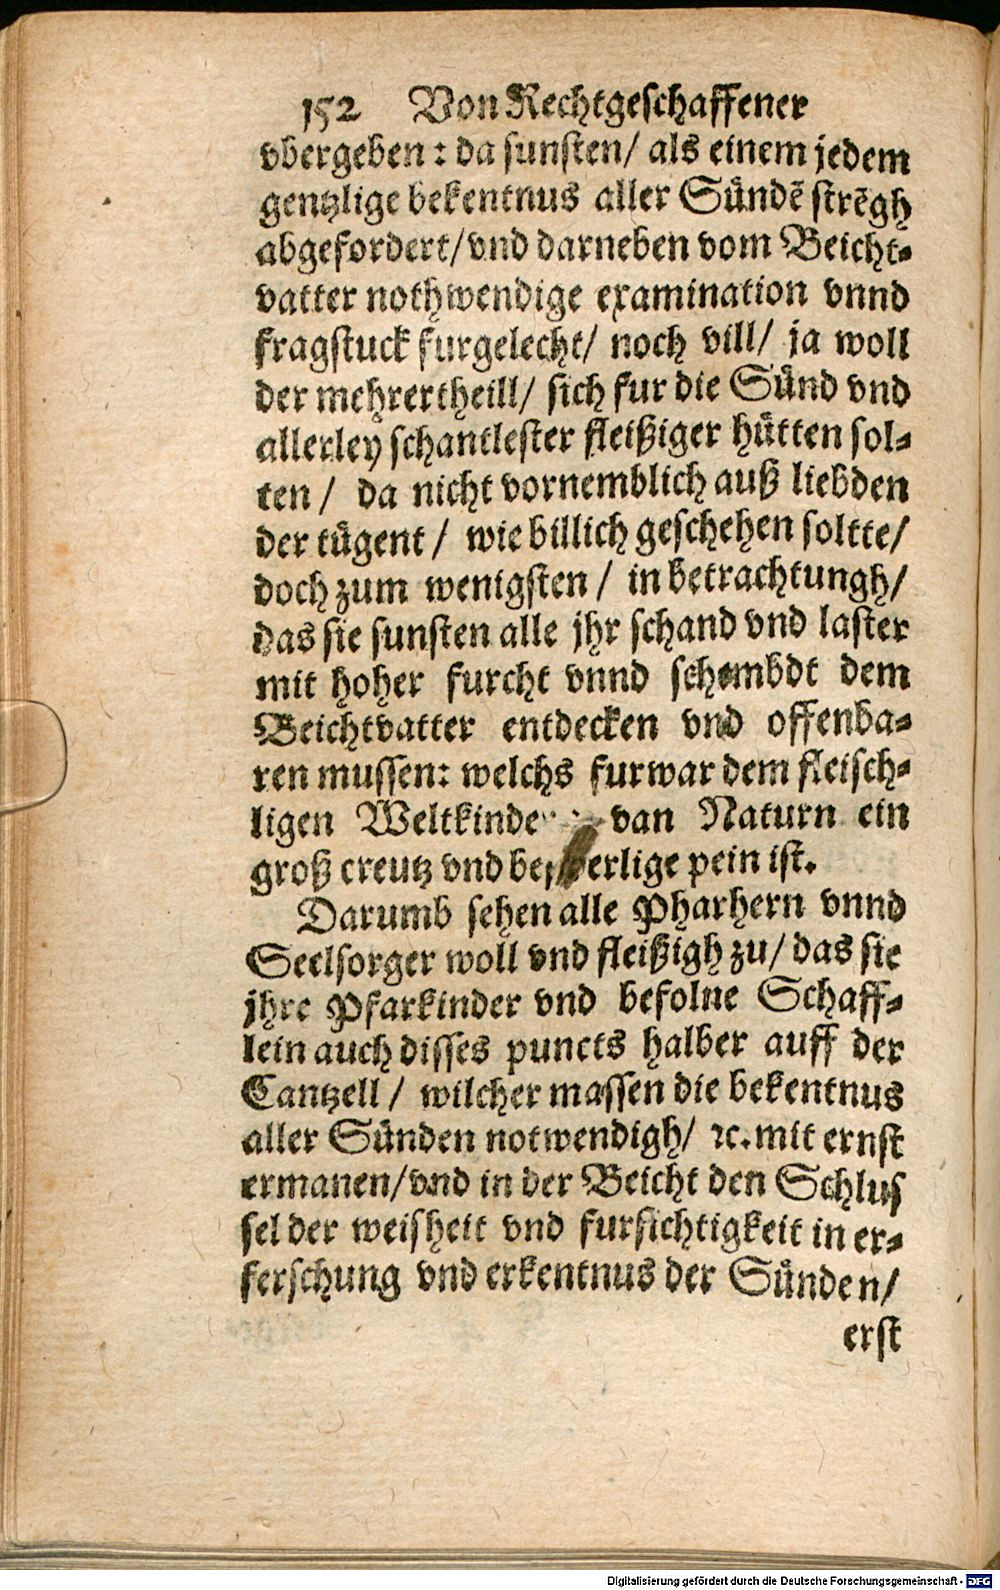 152 Von Rechtgeschaffener
vbergeben: da sunsten/ als einem jedem
gentzlige bekentnus aller Sündẽ strẽgh
abgefordert/ vnd darneben vom Beicht-
vatter nothwendige examination vnnd
fragstuck furgelecht/ noch vill/ ja woll
der mehrertheill/ sich fur die Sünd vnd
allerley schantlester fleißiger hütten sol-
ten/ da nicht vornemblich auß liebden
der tügent/ wie billich geschehen soltte/
doch zum wenigsten/ in betrachtungh/
das sie sunsten alle jhr schand vnd laster
mit hoher furcht vnnd schembdt dem
Beichtvatter entdecken vnd offenba-
ren mussen: welchs furwar dem fleisch-
ligen van Naturn ein
groß creutz vnd pein ist.
Darumb sehen alle Pharhern vnnd
Seelsorger woll vnd fleißigh zu/ das sie
jhre Pfarkinder vnd befolne Schaff-
lein auch disses puncts halber auff der
Cantzell/ wilcher massen die bekentnus
aller Sünden notwendigh/ ꝛc. mit ernst
ermanen/ vnd in der Beicht den Schlus
sel der weisheit vnd fursichtigkeit in er-
ferschung vnd erkentnus der Sünden/
erst
Digitalisierung gefördert durch die Deutsche Forschungsgemeinschaft - DFG